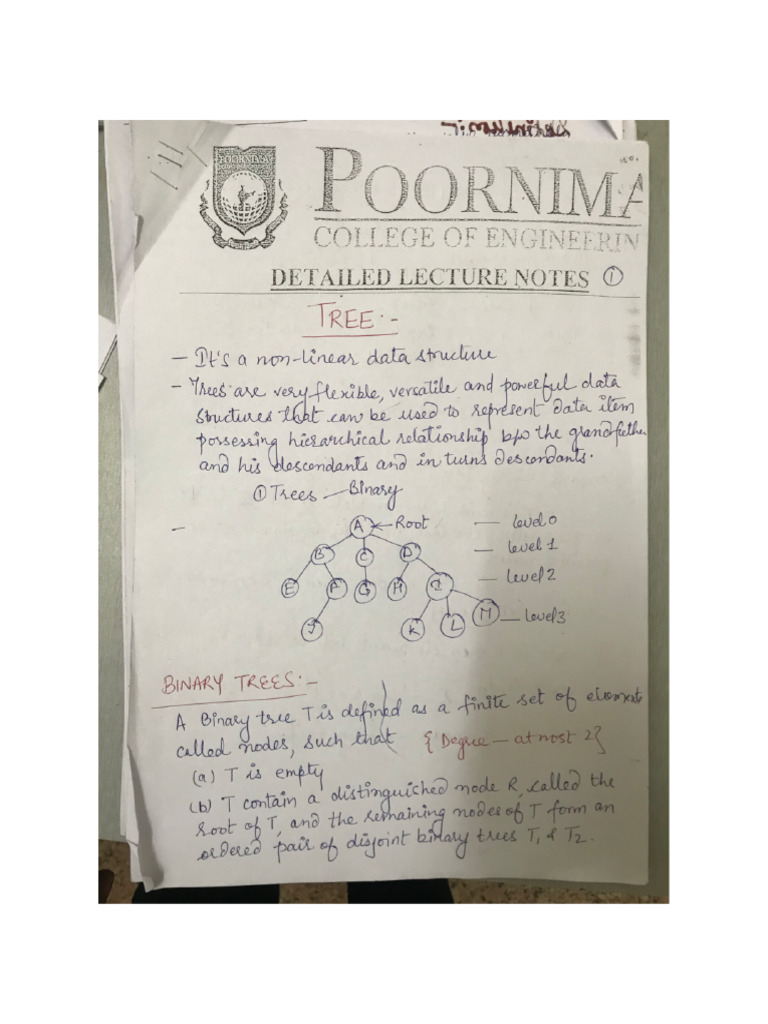 POORNIMA
COLLEGE OF ENGINEERIN
DETAILED LECTURE NOTES ①
TREE:-
- It's a non-linear data structure
- Trees are very flexible, versatile and powerful data
structures that can be used to represent data item
possessing hierarchical relationship b/w the grandfather
and his descendants and in turns descendants.
① Trees - Binary
- A ← Root - level 0
B C D - level 1
E F G H I - level 2
J K L M - level 3
BINARY TREES:-
A Binary tree T is defined as a finite set of elements
called nodes, such that { Degree - at most 2}
(a) T is empty
(b) T contain a distinguished node R, called the
root of T, and the remaining nodes of T form an
ordered pair of disjoint binary trees T1 & T2.